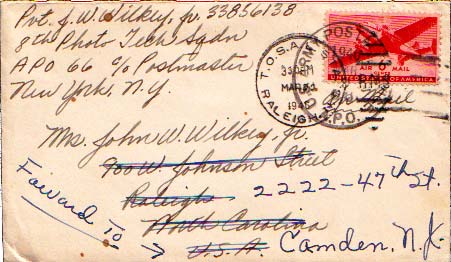 Pvt. J. W. Wilkey, Jr. 33856138
8th Photo Tech Sqdn
APO 66 c/o Postmaster
New York, N.Y.
ARMY POST
A.P.O.
RALEIGH
MAR
AIR MAIL
UNITED STATES OF AMERICA
Air Mail
Ms. John W. Wilkey, Jr.
900 W. Johnson Street
Raleigh
North Carolina
U.S.A.
Forward To
2222-47th St.
Camden, N.J.